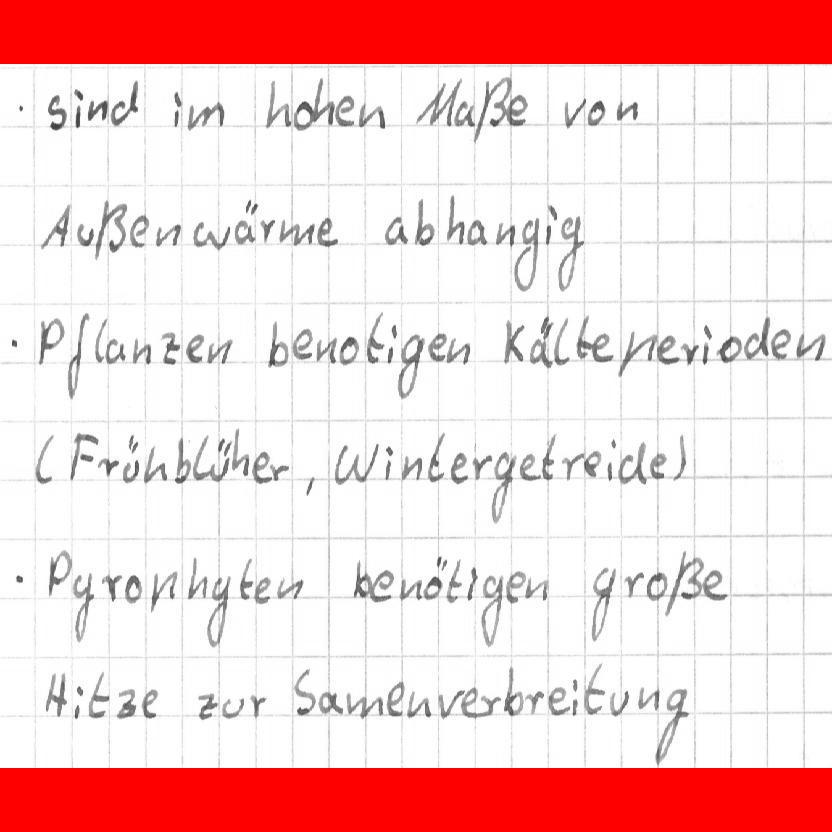 · sind im hohen Maße von
Außenwärme abhangig
· Pflanzen benotigen Kälteperioden
(Frühblüher, Wintergetreide)
· Pyrophyten benötigen große
Hitze zur Samenverbreitung